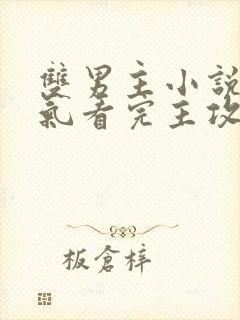 雙男主小說
氣看完主攻
板倉梓